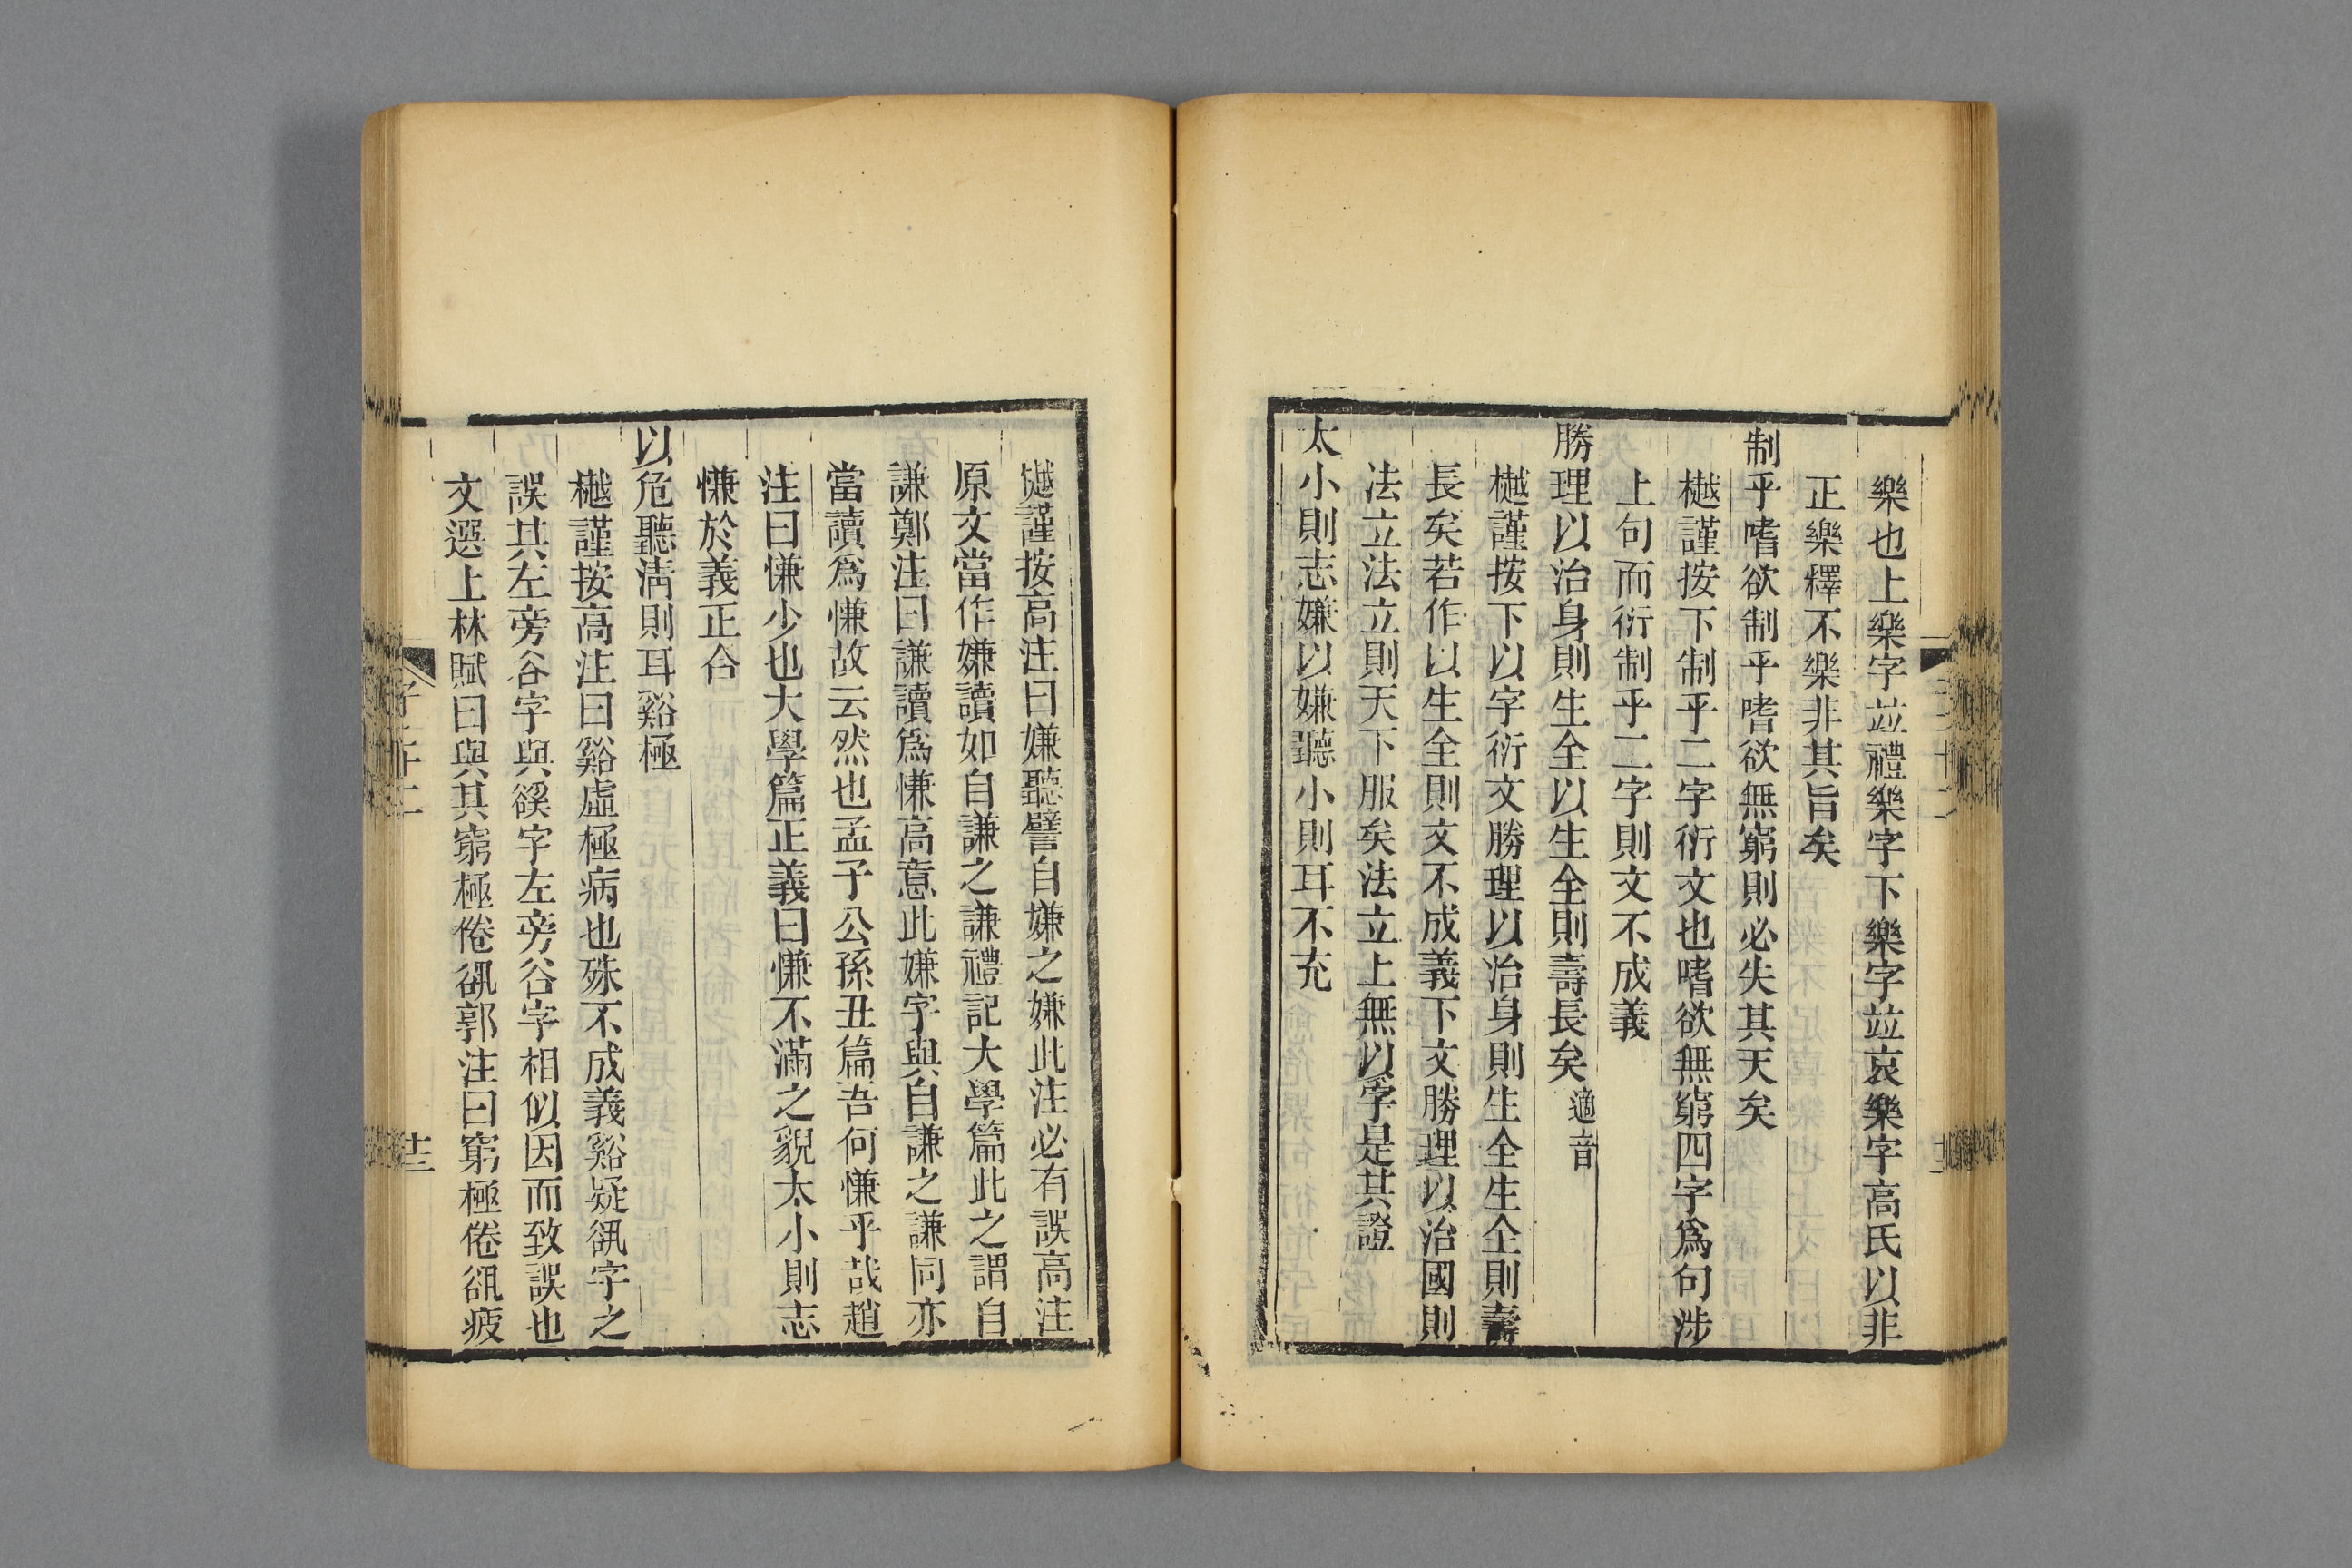 樂也上樂字竝禮樂字下樂字竝哀樂字高氏以非
正樂釋不樂非其旨矣
制乎嗜欲制乎嗜欲無窮則必失其天矣
樾謹按下制乎二字衍文也嗜欲無窮四字爲句涉
上句而衍制乎二字則文不成義
勝理以治身則生全以生全則壽長矣適音
樾謹按下以字衍文勝理以治身則生全生全則壽
長矣若作以生全則文不成義下文勝理以治國則
法立法立則天下服矣法立上無以字是其證
太小則志嫌以嫌聽小則耳不充
樾謹按高注曰嫌聽譬自嫌之嫌此注必有誤高注
原文當作嫌讀如自謙之謙禮記大學篇此之謂自
謙鄭注曰謙讀爲慊高意此嫌字與自謙之謙同亦
當讀爲慊故云然也孟子公孫丑篇吾何慊乎哉趙
注曰慊少也大學篇正義曰慊不滿之貌太小則志
慊於義正合
以危聽淸則耳谿極
樾謹按高注曰谿虛極病也殊不成義谿疑㕁字之
誤其左旁谷字與谿字左旁谷字相似因而致誤也
文選上林賦曰與其窮極倦㕁郭注曰窮極倦㕁疲